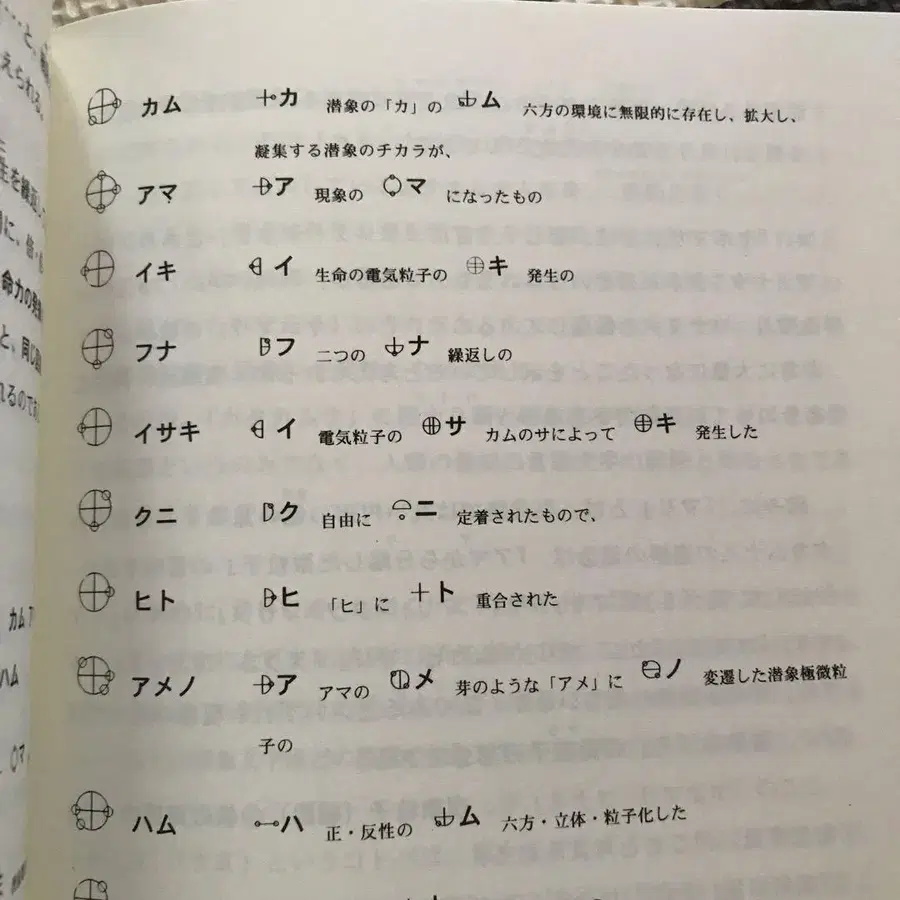 …と、
えられる。
カム カ 潜象の「カ」の ム 六方の環境に無限的に存在し、拡大し、
凝集する潜象のチカラが、
アマ ア 現象の マ になったもの
イキ イ 生命の電気粒子の キ 発生の
フナ フ 二つの ナ 繰返しの
イサキ イ 電気粒子の サ カムのサによって キ 発生した
クニ ク 自由に ニ 定着されたもので、
ヒト ヒ 「ヒ」に ト 重合された
アメノ ア アマの メ 芽のような「アメ」に ノ 変遷した潜象極微粒
子の
ハム ハ 正・反性の ム 六方・立体・粒子化した
生を繰返して
に、倍・
命力の発
と、同じ
れるので
カム ア
ハム
マ